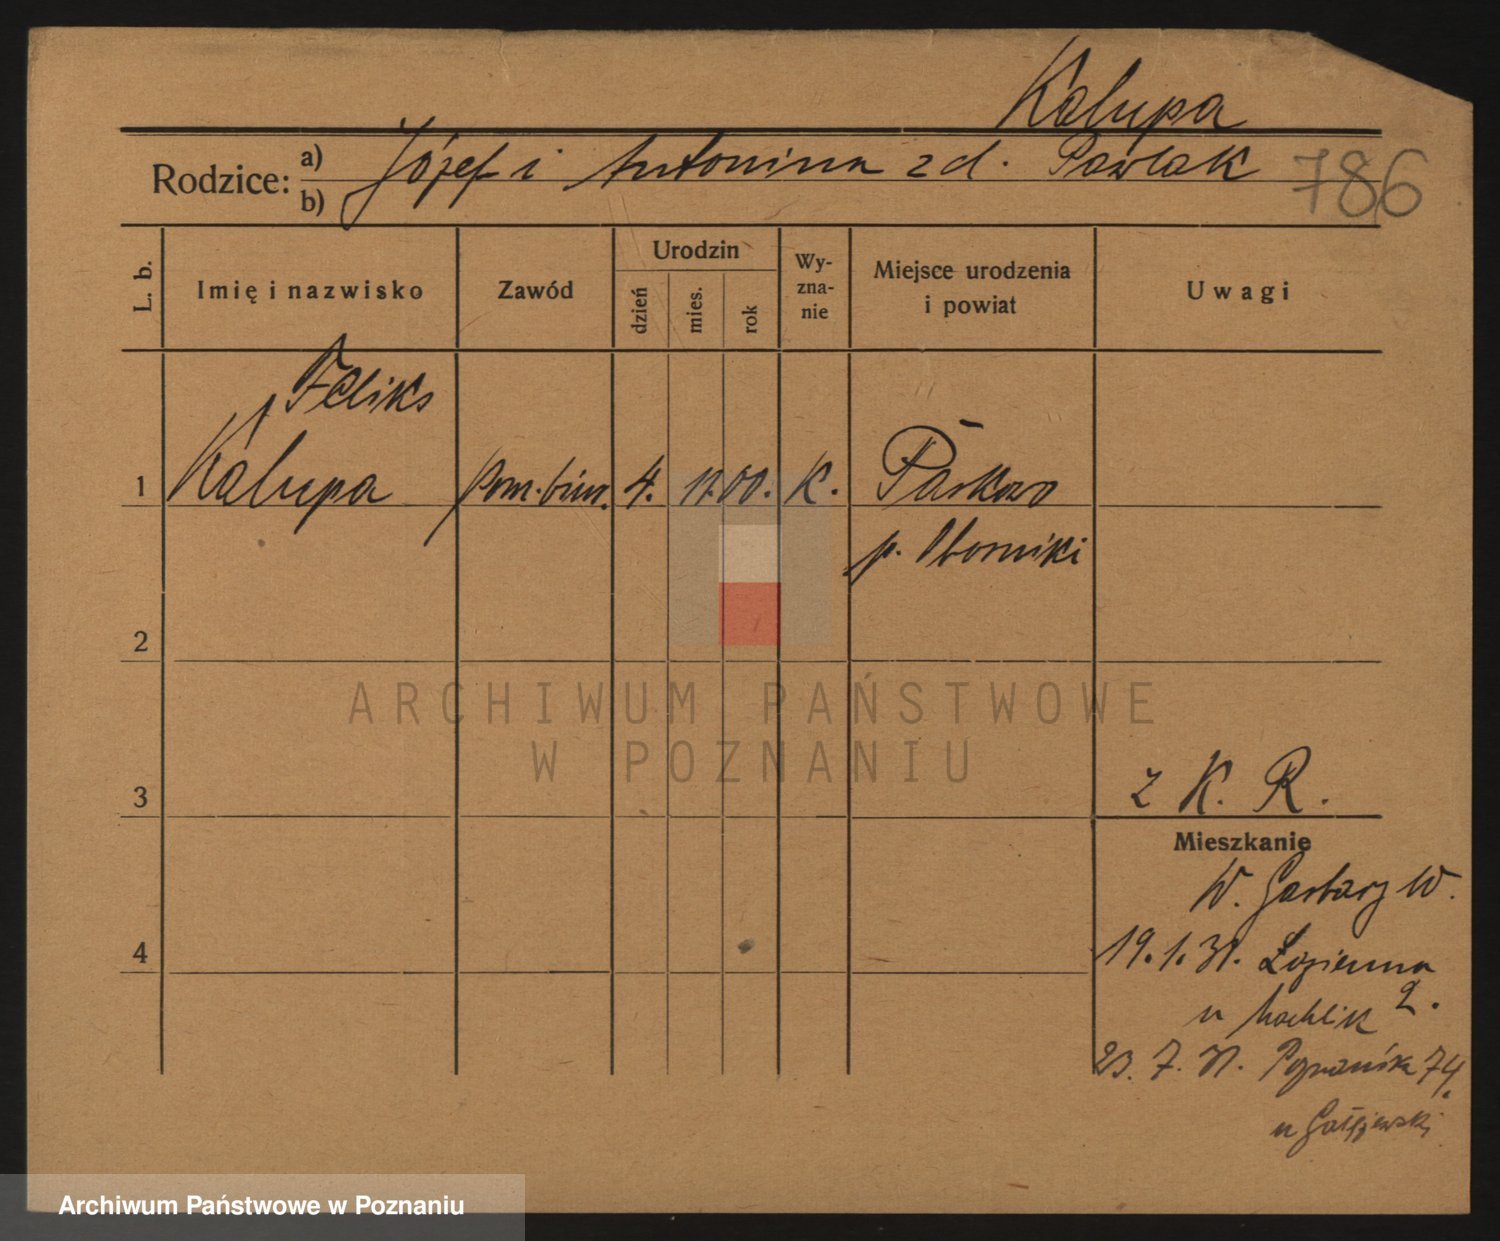 Kałupa
Rodzice: a) Józef i Antonina z d. Pawlak
b)
786
L. b.
Imię i nazwisko
Zawód
Urodzin
dzień
mies.
rok
Wy-
zna-
nie
Miejsce urodzenia
i powiat
Uwagi
Feliks
1 Kałupa pom. biur. 4. 11. 00. K. Parkowo
p. Oborniki
2
3
z K. R.
Mieszkanie
W. Garbary W.
4
19. 1. 31. Łozienna
2.
u
23. 7. 31. Poznańska 74.
u
ARCHIWUM PAŃSTWOWE
W POZNANIU
Archiwum Państwowe w Poznaniu